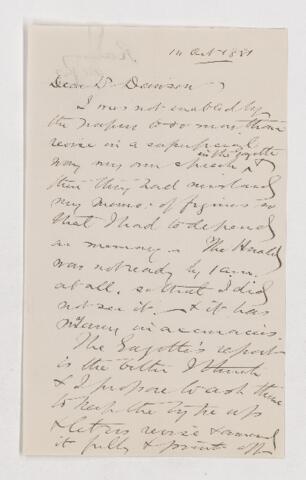 14 Oct 1881
Dear Dr Dawson
I was not enabled by
the papers to do more than
revise in a superficial
in the Gazette
way my own speech &
then they had mislaid
my memo: of figures so
that I had to depend
on memory. The Herald
was not ready by 1 a.m.
at all, so that I did
not see it — & it has
many inaccuracies.
The Gazette's report
is the better I think
& I propose to ask them
to keep the type up
& let us revise & amend
it fully & print off